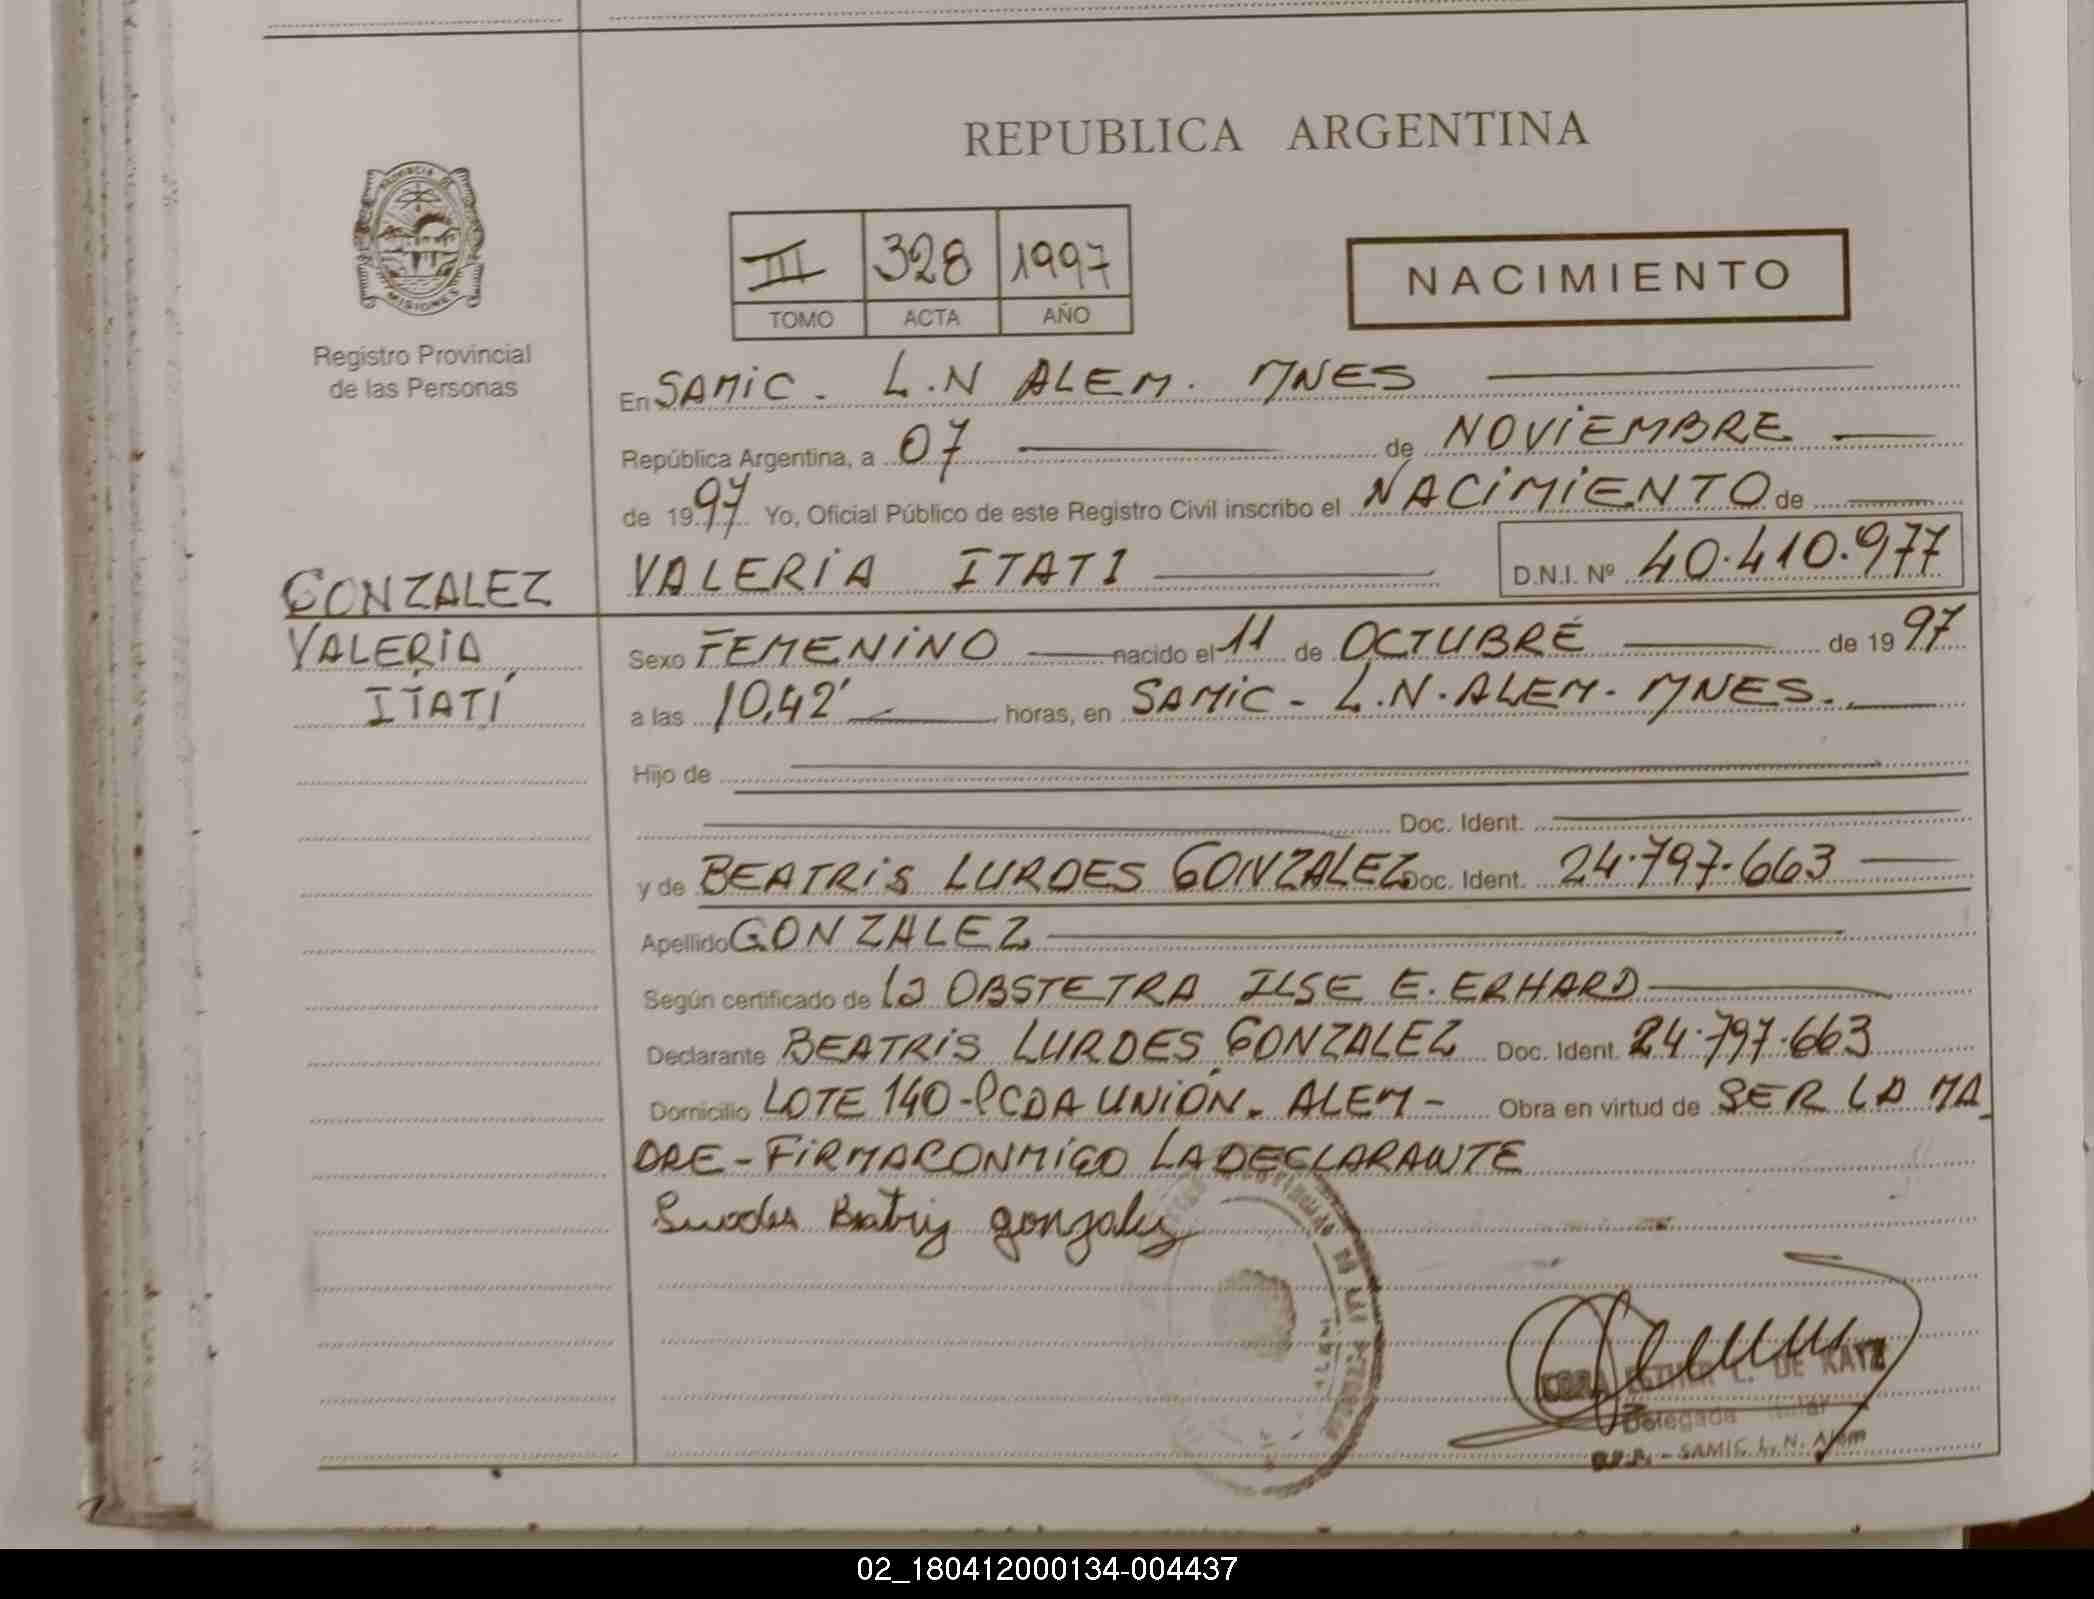 REPUBLICA ARGENTINA
PROVINCIA DE MISIONES
III 328 1997
TOMO ACTA AÑO
NACIMIENTO
Registro Provincial
de las Personas
En SAMIC. L.N ALEM. MNES
República Argentina, a 07 de NOVIEMBRE
de 1997 Yo, Oficial Público de este Registro Civil inscribo el NACIMIENTO de
VALERIA ITATI D.N.I. Nº 40.410.977
GONZALEZ
VALERIA
ITATÍ
Sexo FEMENINO nacido el 11 de OCTUBRE de 1997
a las 10,42' horas, en SAMIC - L.N. ALEM. MNES.
Hijo de
Doc. Ident.
y de BEATRIS LURDES GONZALEZ Doc. Ident. 24.797.663
Apellido GONZALEZ
Según certificado de la OBSTETRA ILSE E. ERHARD
Declarante BEATRIS LURDES GONZALEZ Doc. Ident. 24.797.663
Domicilio LOTE 140 - PCDA UNIÓN. ALEM - Obra en virtud de SER LA MA_
DRE - FIRMA CONMIGO LA DECLARANTE
Lurdes Beatriz gonzalez
ESTHER L. DE KATZ
Delegada Titular
- SAMIC L.N. Alem
02_180412000134-004437